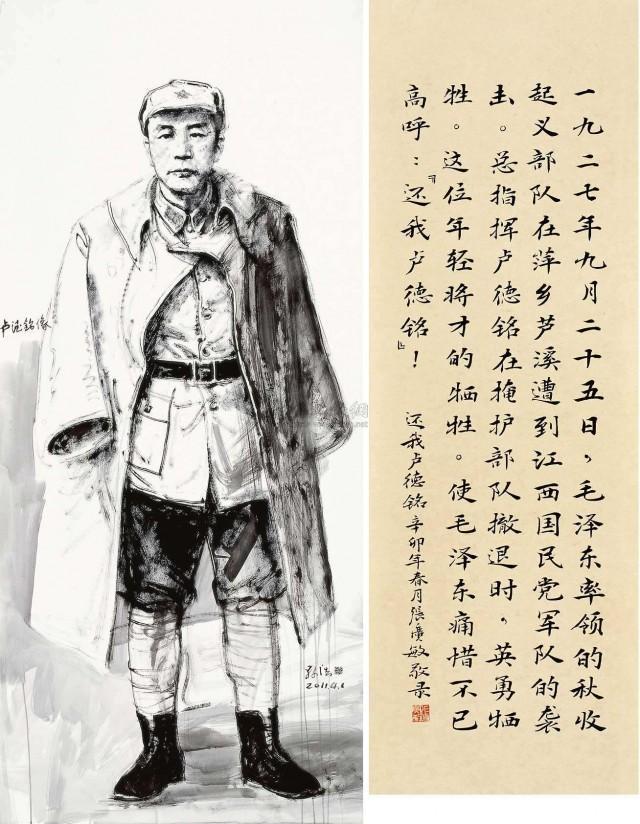 卢德铭像
2011.4.1
一九二七年九月二十五日，毛泽东率领的秋收
起义部队在萍乡芦溪遭到江西国民党军队的袭
击。总指挥卢德铭在掩护部队撤退时，英勇牺
牲。这位年轻将才的牺牲。使毛泽东痛惜不已
高呼：『还我卢德铭』！
还我卢德铭辛卯年春月張廣敏敬录